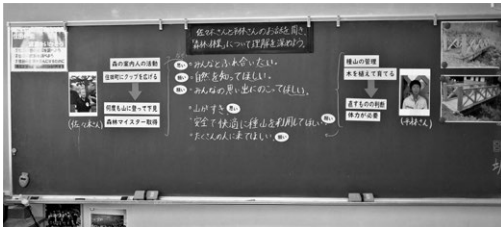 佐々木さんと平林さんのお話を聞き、
森林・林業について理解を深めよう。
森の案内人の活動
住田町にクッブを広げる
何度も山に登って下見
森林マイスター取得
(佐々木さん)
思い
・みんなとふれ合いたい。
願い
・自然を知ってほしい。
願い
・みんなの思い出にのこってほしい。
・山がすき。
思い
・安全で快適に種山を利用してほしい
願い
・たくさんの人に来てほしい
願い
種山の管理
木を植えて育てる
直すものの判断
体力が必要